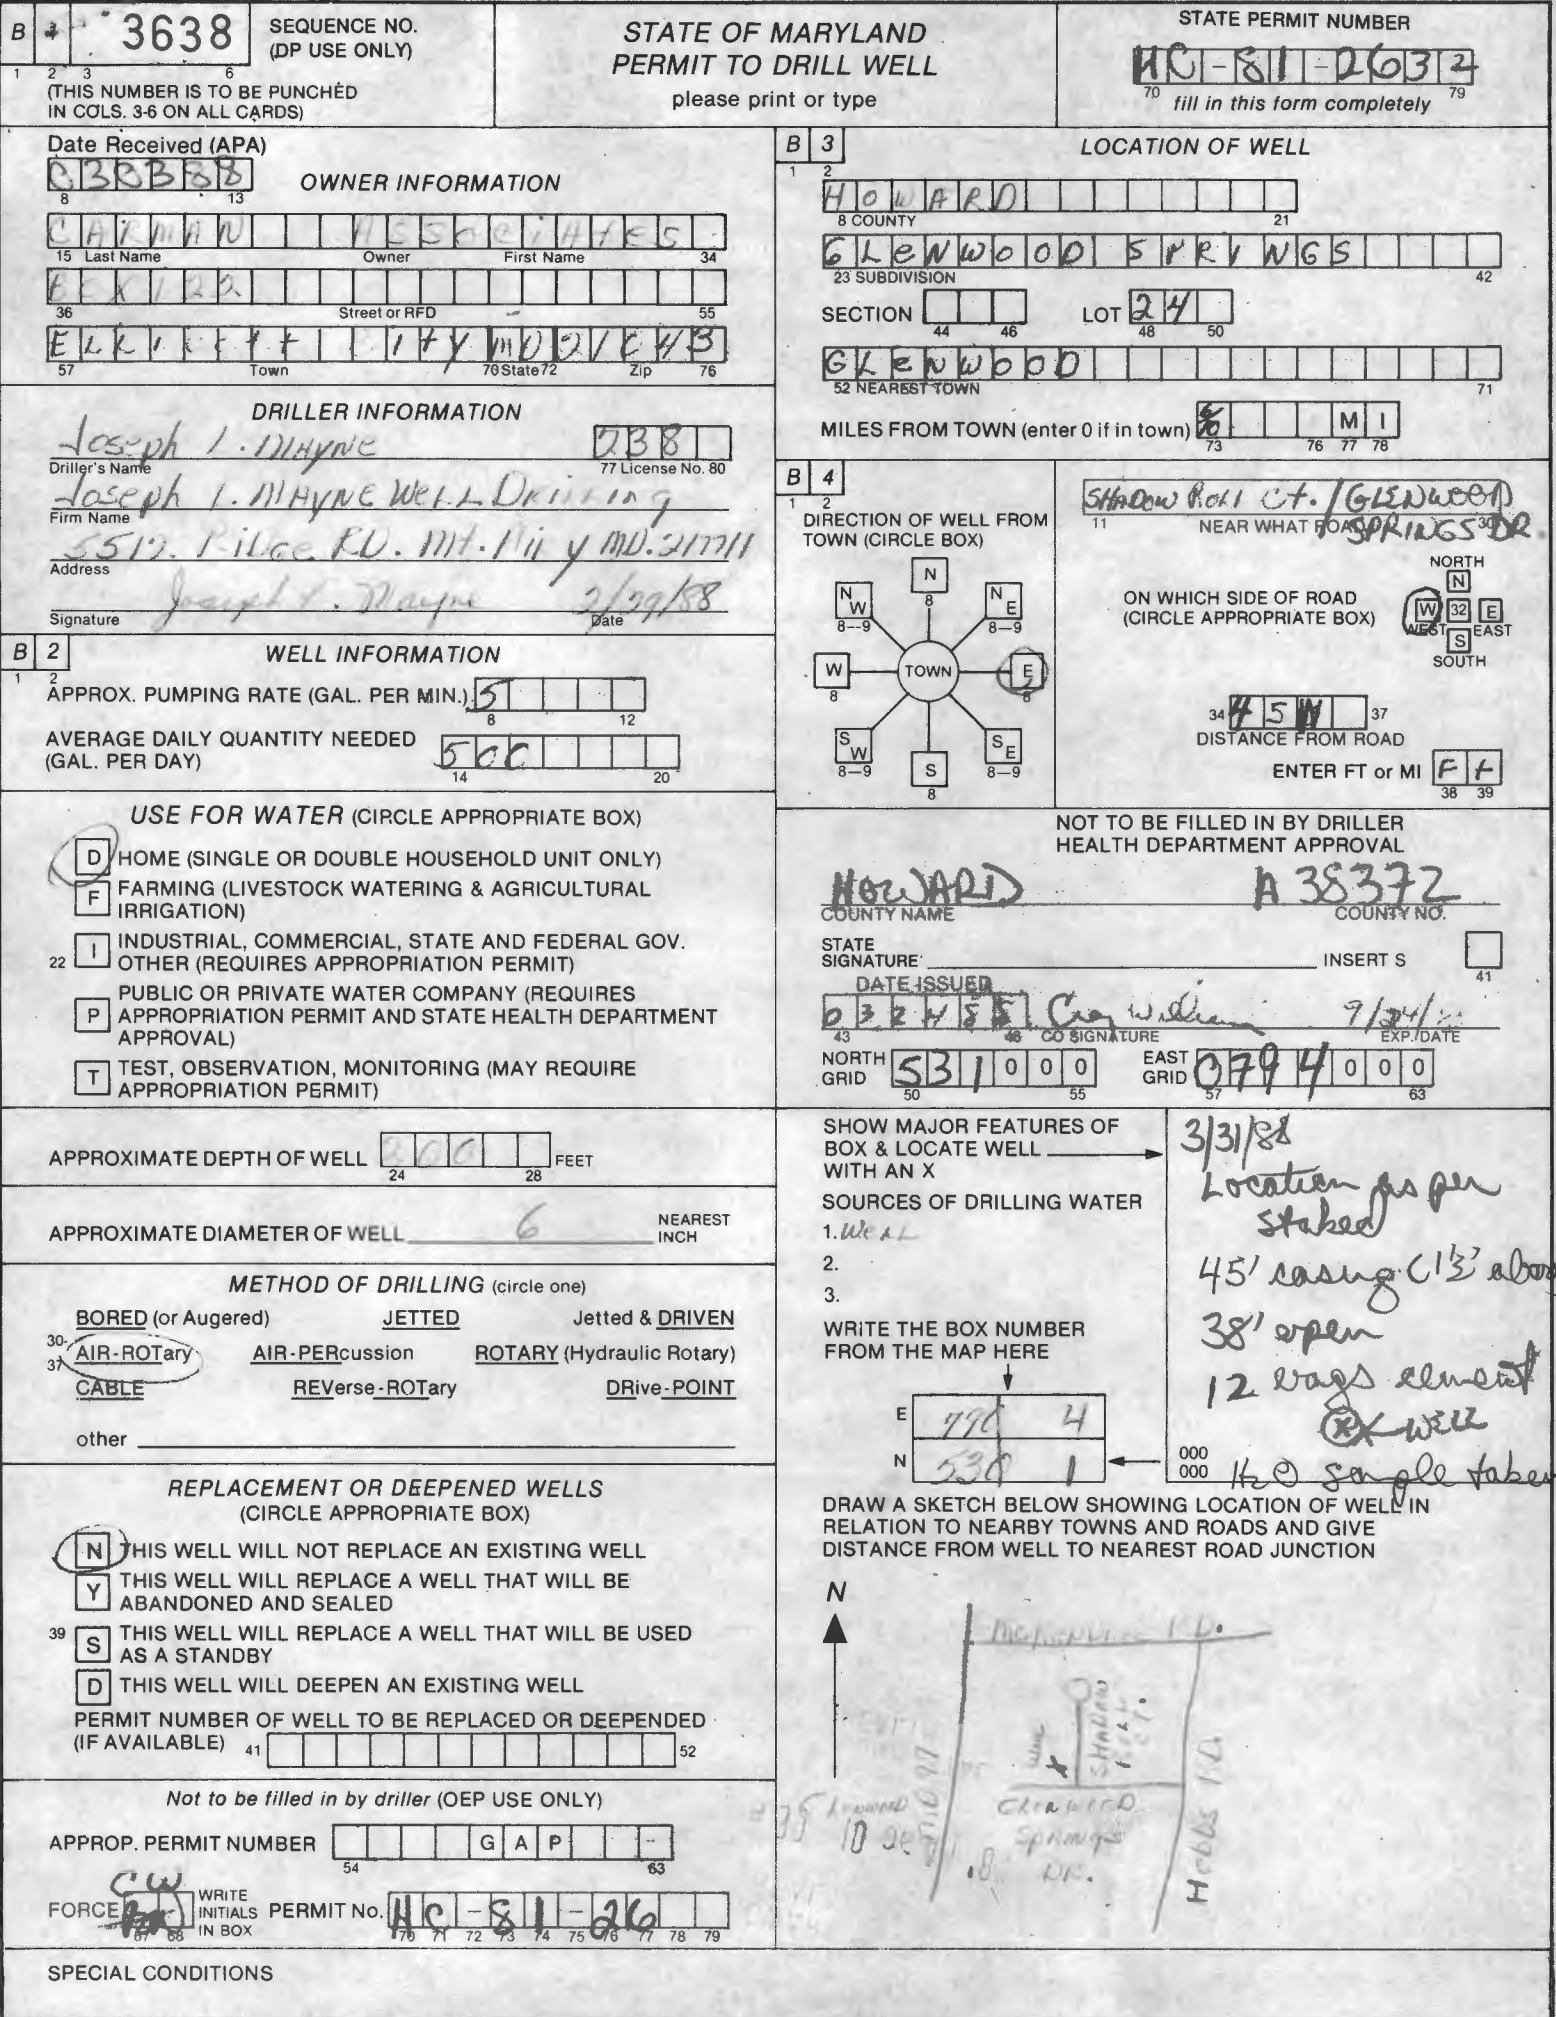 B 3638 SEQUENCE NO.
(DP USE ONLY)
1 2 3 6
(THIS NUMBER IS TO BE PUNCHED
IN COLS. 3-6 ON ALL CARDS)
STATE OF MARYLAND
PERMIT TO DRILL WELL
please print or type
STATE PERMIT NUMBER
HC-81-2632
70 79
fill in this form completely
Date Received (APA)
8 13
OWNER INFORMATION
CARMAN ASSOCIATES
15 Last Name Owner First Name 34
BOX 122
36 Street or RFD 55
Ellicott City MD 21043
57 Town 70 State 72 Zip 76
DRILLER INFORMATION
Joseph L. MAYNE 238
Driller's Name 77 License No. 80
Joseph L. MAYNE Well Drilling
Firm Name
5512 Ridge RD. Mt. Airy MD. 21771
Address
Joseph L. Mayne 2/29/88
Signature Date
B 2 WELL INFORMATION
1 2
APPROX. PUMPING RATE (GAL. PER MIN.) 5
8 12
AVERAGE DAILY QUANTITY NEEDED
(GAL. PER DAY) 500
14 20
USE FOR WATER (CIRCLE APPROPRIATE BOX)
D HOME (SINGLE OR DOUBLE HOUSEHOLD UNIT ONLY)
F FARMING (LIVESTOCK WATERING & AGRICULTURAL
IRRIGATION)
22 I INDUSTRIAL, COMMERCIAL, STATE AND FEDERAL GOV.
OTHER (REQUIRES APPROPRIATION PERMIT)
P PUBLIC OR PRIVATE WATER COMPANY (REQUIRES
APPROPRIATION PERMIT AND STATE HEALTH DEPARTMENT
APPROVAL)
T TEST, OBSERVATION, MONITORING (MAY REQUIRE
APPROPRIATION PERMIT)
APPROXIMATE DEPTH OF WELL 200 FEET
24 28
APPROXIMATE DIAMETER OF WELL 6 NEAREST
INCH
METHOD OF DRILLING (circle one)
BORED (or Augered) JETTED Jetted & DRIVEN
30-37 AIR-ROTary AIR-PERcussion ROTARY (Hydraulic Rotary)
CABLE REVerse-ROTary DRive-POINT
other
REPLACEMENT OR DEEPENED WELLS
(CIRCLE APPROPRIATE BOX)
N THIS WELL WILL NOT REPLACE AN EXISTING WELL
Y THIS WELL WILL REPLACE A WELL THAT WILL BE
ABANDONED AND SEALED
39 S THIS WELL WILL REPLACE A WELL THAT WILL BE USED
AS A STANDBY
D THIS WELL WILL DEEPEN AN EXISTING WELL
PERMIT NUMBER OF WELL TO BE REPLACED OR DEEPENDED
(IF AVAILABLE) 41 52
Not to be filled in by driller (OEP USE ONLY)
APPROP. PERMIT NUMBER GAP -
54 63
CW
FORCE WRITE
INITIALS
IN BOX
67 68
PERMIT No. HC-81-26
70 71 72 73 74 75 76 77 78 79
SPECIAL CONDITIONS
B 3 LOCATION OF WELL
1 2
HOWARD
8 COUNTY 21
GLENWOOD SPRINGS
23 SUBDIVISION 42
SECTION LOT 24
44 46 48 50
GLENWOOD
52 NEAREST TOWN 71
MILES FROM TOWN (enter 0 if in town) MI
73 76 77 78
B 4
1 2
DIRECTION OF WELL FROM
TOWN (CIRCLE BOX)
N
8
NW
8--9
NE
8--9
W
8
TOWN
E
8
SW
8--9
S
8
SE
8--9
SHADOW ROLL Ct. / GLENWOOD
SPRINGS DR.
11 NEAR WHAT ROAD 30
ON WHICH SIDE OF ROAD
(CIRCLE APPROPRIATE BOX)
NORTH
N
W 32 E
WEST EAST
S
SOUTH
34 45 37
DISTANCE FROM ROAD
ENTER FT or MI Ft
38 39
NOT TO BE FILLED IN BY DRILLER
HEALTH DEPARTMENT APPROVAL
HOWARD A 38372
COUNTY NAME COUNTY NO.
STATE
SIGNATURE INSERT S
41
DATE ISSUED
032488 9/24/
43 48 CO SIGNATURE EXP. DATE
NORTH
GRID 531000
50 55
EAST
GRID 0794000
57 63
SHOW MAJOR FEATURES OF
BOX & LOCATE WELL
WITH AN X
SOURCES OF DRILLING WATER
1. Well
2.
3.
WRITE THE BOX NUMBER
FROM THE MAP HERE
E 790 4
N 530 1
000
000
3/31/88
Location as per
staked
45' casing (1½' above
38' open
12 bags cement
X-WELL
H2O sample taken
DRAW A SKETCH BELOW SHOWING LOCATION OF WELL IN
RELATION TO NEARBY TOWNS AND ROADS AND GIVE
DISTANCE FROM WELL TO NEAREST ROAD JUNCTION
N
SHADOW
ROLL
CT.
Well
X
GLENWOOD
SPRINGS
DR.
.8
Hobbs RD.